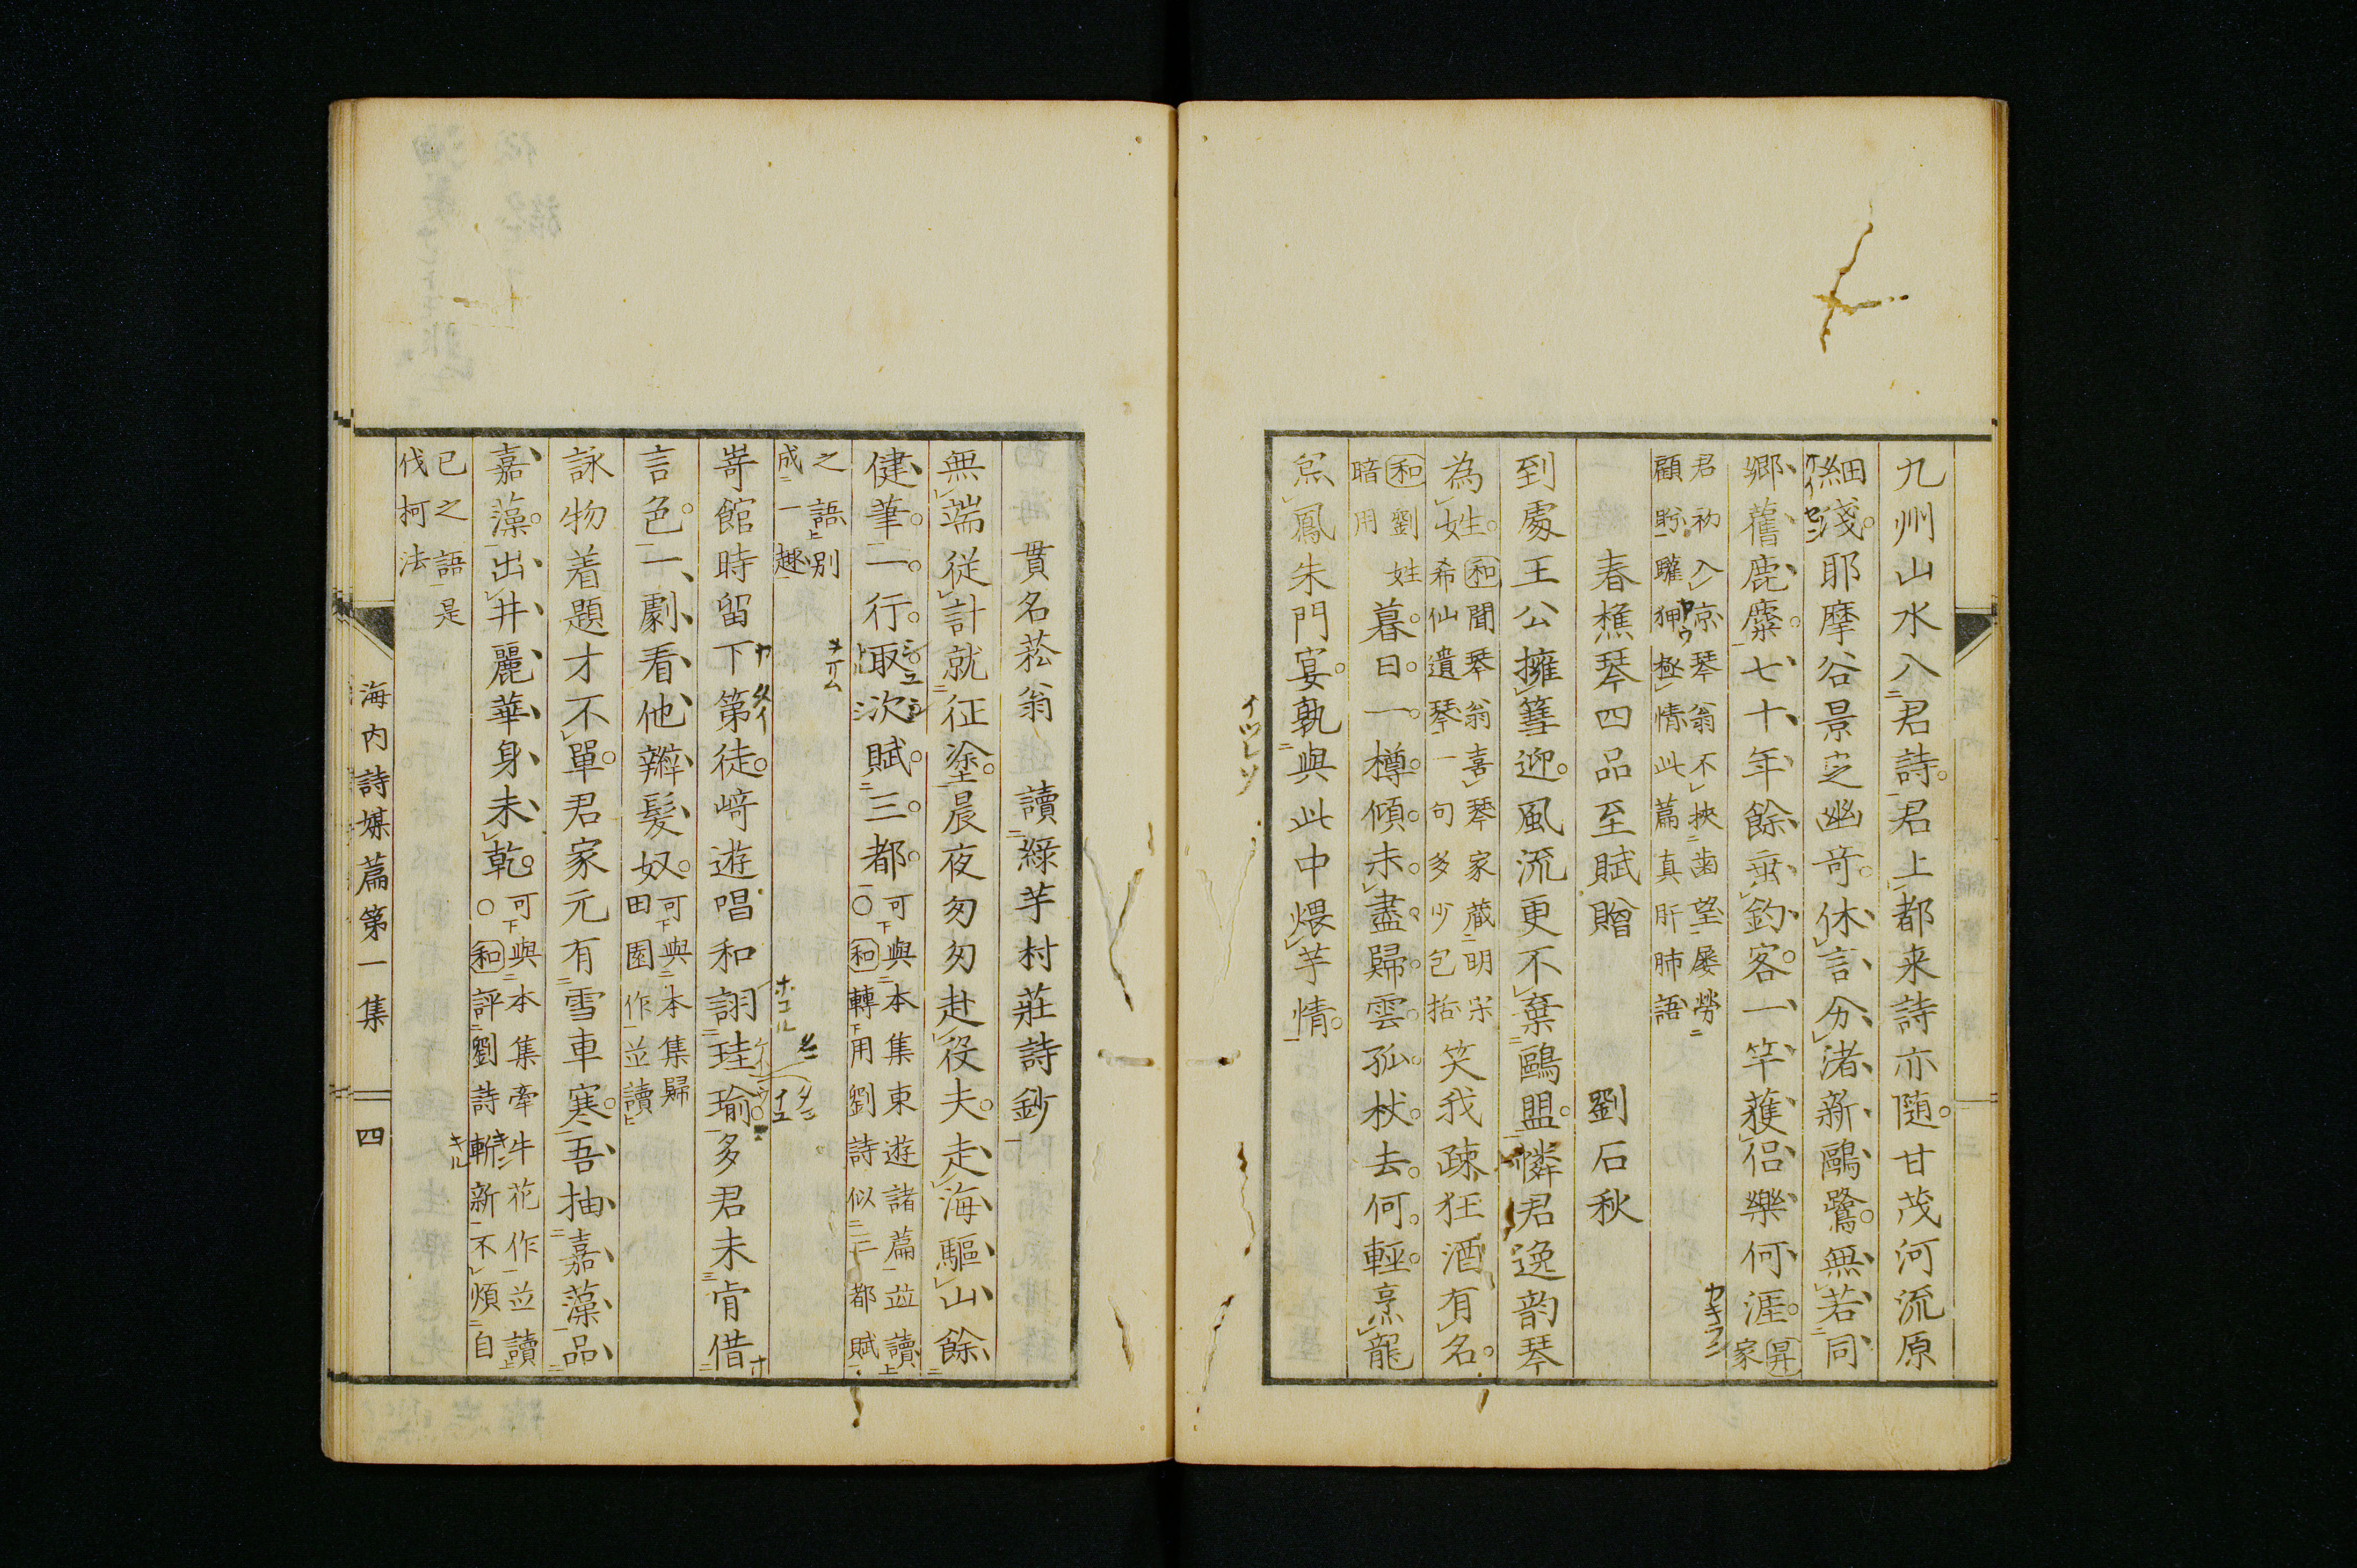 九州山水入君詩君上都来詩亦随甘茂河流原
細淺耶摩谷景乏幽奇休言分渚新鷗鷺無若同
郷舊鹿麋七十年餘垂釣客一竿蓑侶樂何涯昇家
君初入京琴翁不挾齒望屡勞
顧盼驩狎極情此篇真肝肺語
春樵琴四品至賦贈　劉石秋
到處王公擁篲迎風流更不棄鷗盟憐君逸韵琴
為姓和聞琴翁喜琴家蔵明宋
希仙遺琴一句多少包括
笑我疎狂酒有名
和劉姓
暗用
暮日一樽傾未盡歸雲孤杖去何輕烹龍
炰鳳朱門宴孰與此中煨芋情
貫名菘翁　讀綠芋村莊詩鈔
無端従計就征塗晨夜匆匆赴役夫走海驅山餘
健筆一行取次賦三都
可與本集東遊諸篇並讀
○和轉用劉詩似二都賦
之語別
成一趣
嵜館時留下第徒﨑遊唱和詡珪瑜多君未肯借
言色一劇看他辮髮奴
可與本集歸
田園作並讀
詠物着題才不單君家元有雪車寒吾抽嘉藻品
嘉藻出井麗華身未乾
可與本集牽牛花作並讀
○和評劉詩斬新不煩自
已之語是
伐柯法
海内詩媒篇第一集　四